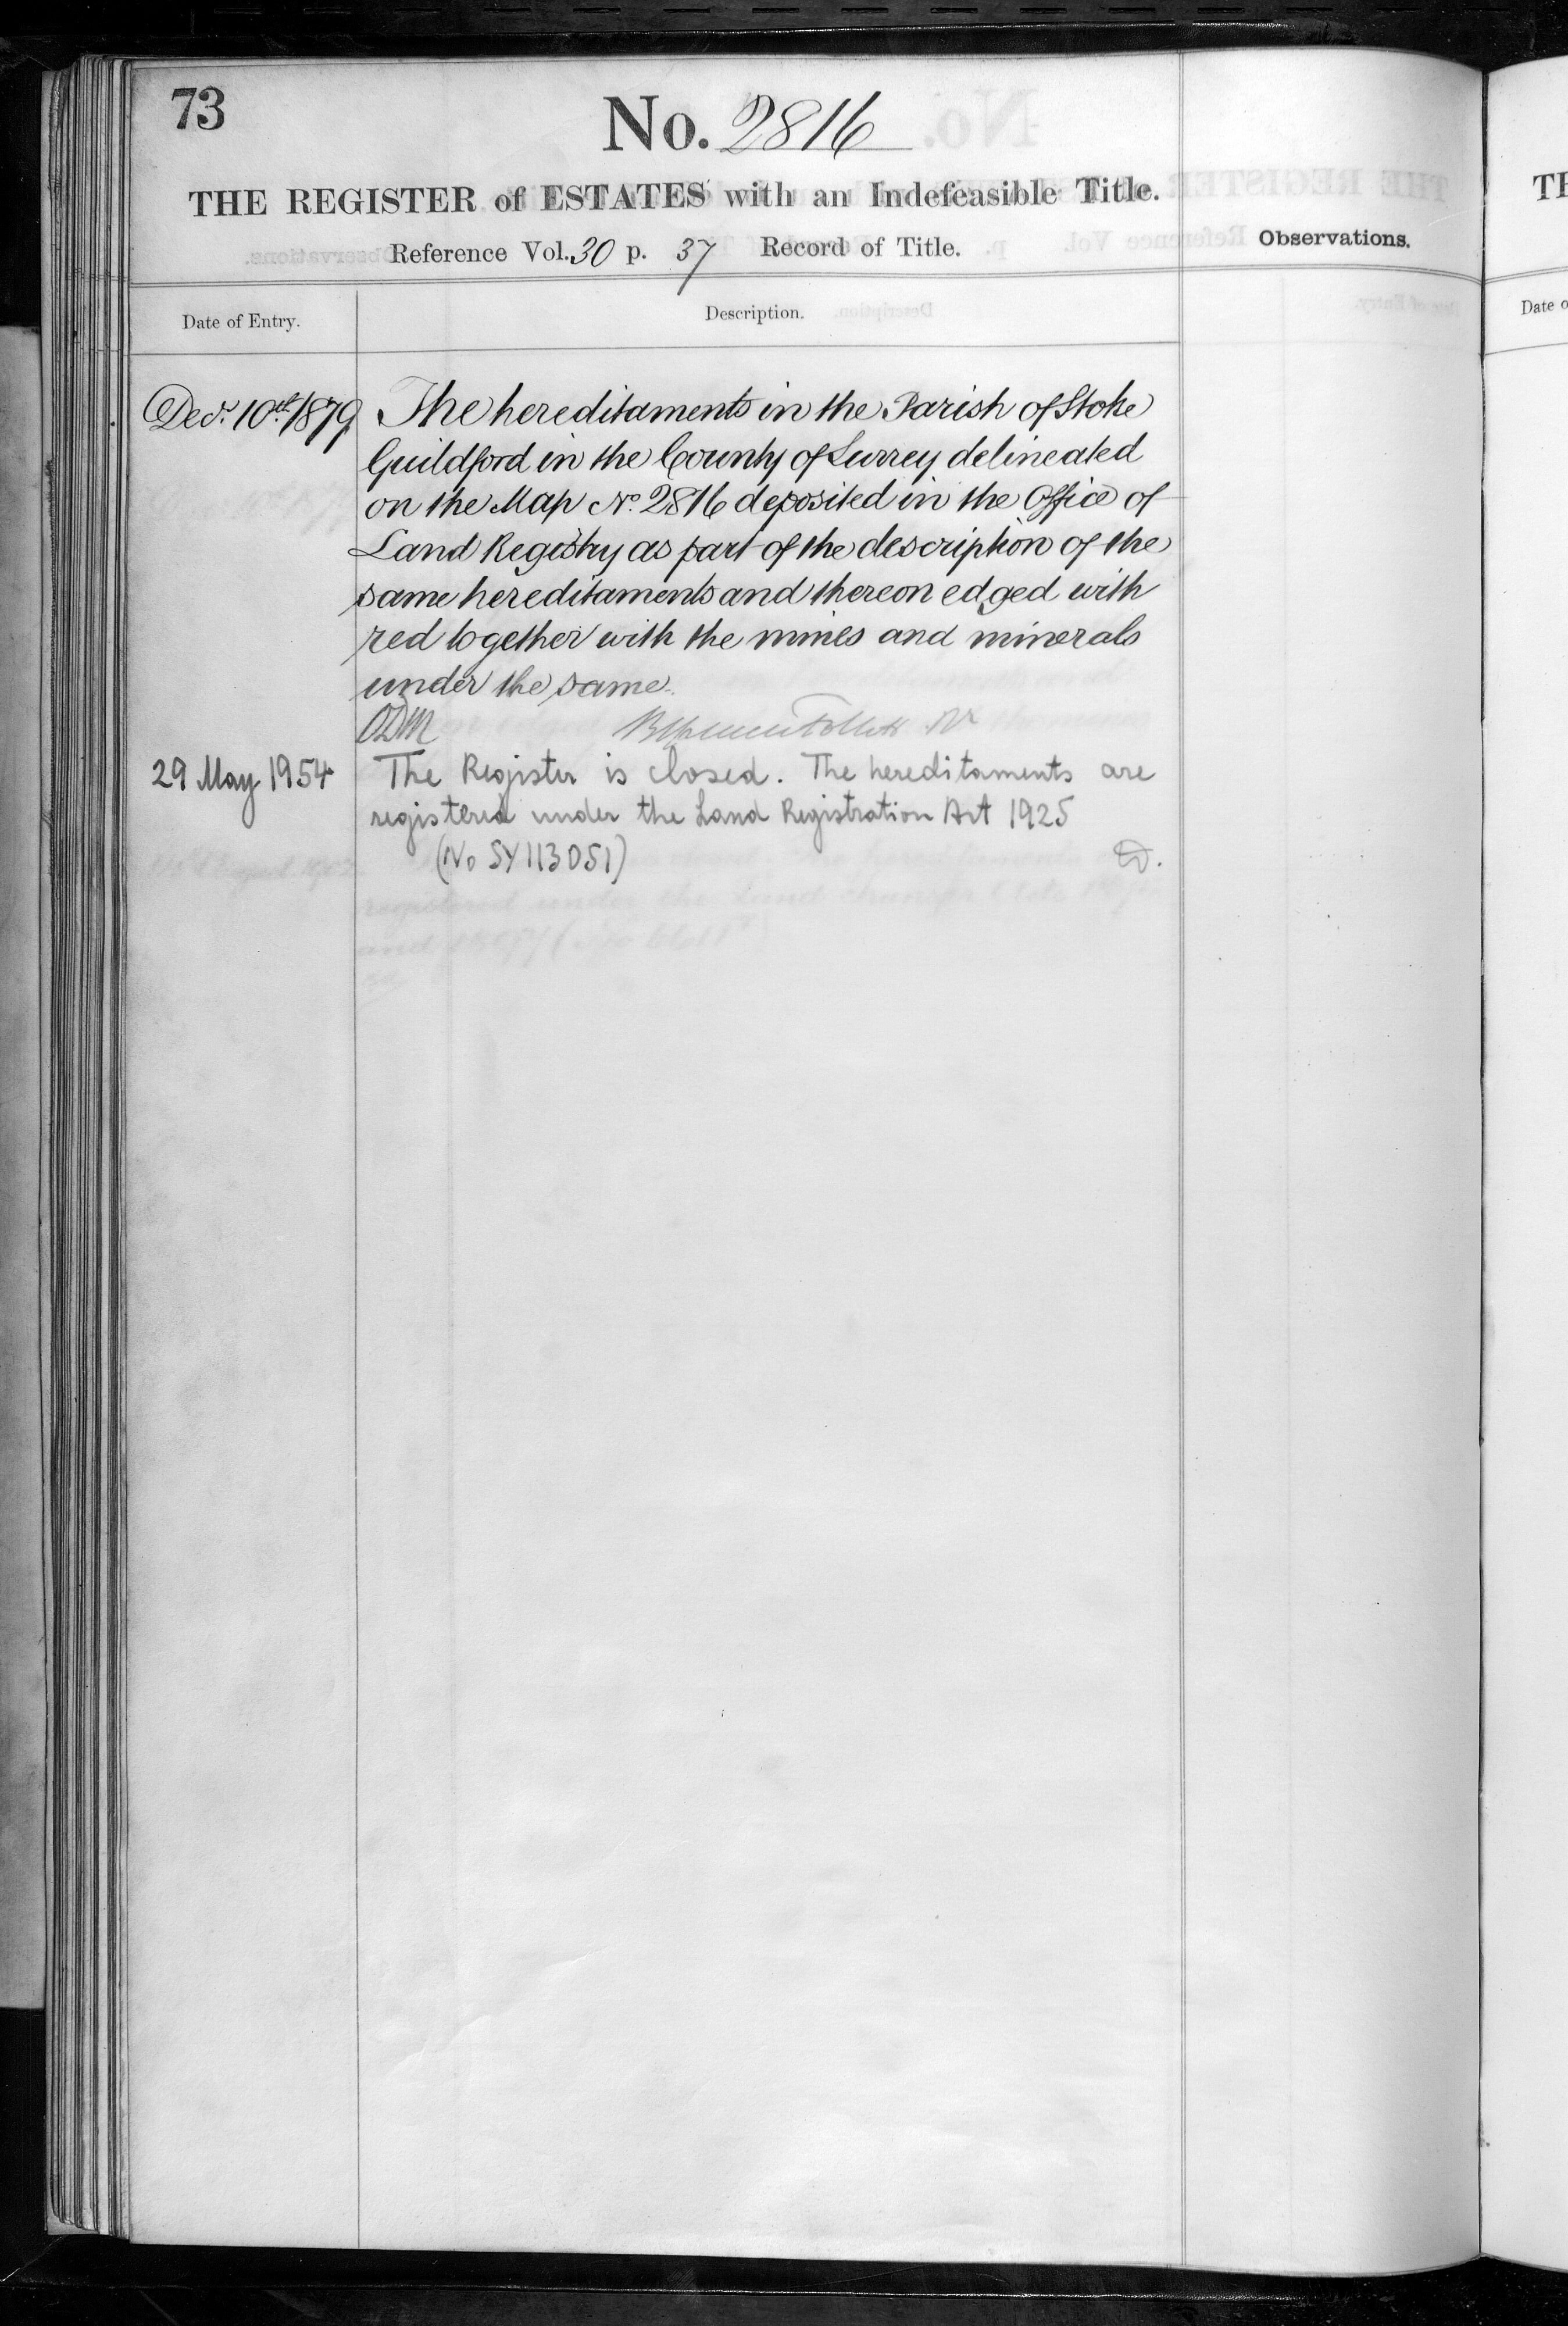 73
No. 2816
THE REGISTER of ESTATES with an Indefeasible Title.
Reference Vol. 30 p. 37 Record of Title.
Observations.
Date of Entry.
Description.
Decr. 10th 1879
The hereditaments in the Parish of Stoke
Guildford in the County of Surrey delineated
on the Map No. 2816 deposited in the Office of
Land Registry as part of the description of the
same hereditaments and thereon edged with
red together with the mines and minerals
under the same.
ODM
29 May 1954
The Register is closed. The hereditaments are
registered under the Land Registration Act 1925
(No SY113051)